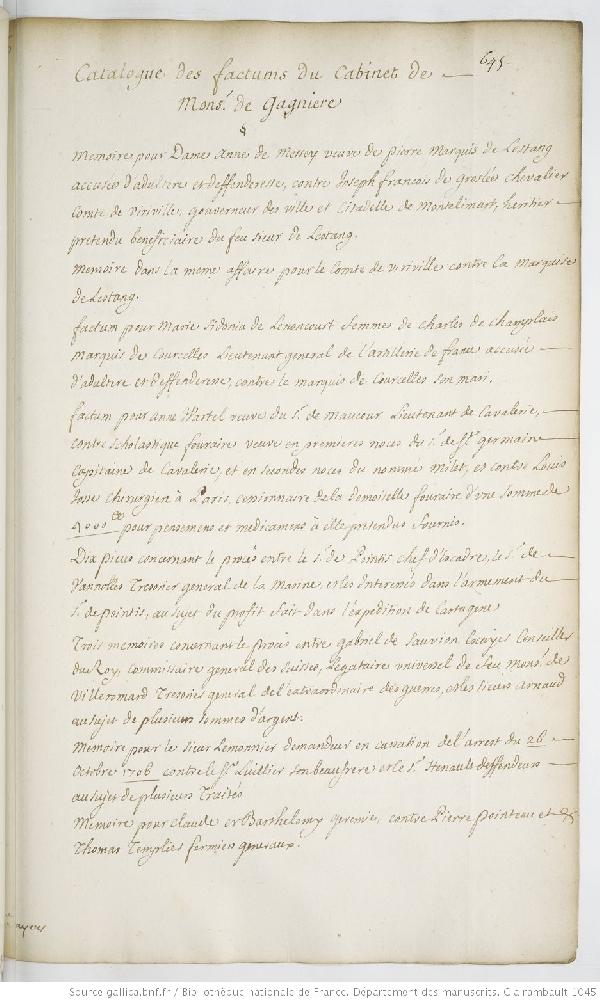 645
Catalogue des factums du Cabinet de
Mons.r de Gagniere
Memoire pour Dame Anne de Messey veuve de pierre Marquis de Lestang
accusée d'adultere et deffenderesse, contre Joseph francois de groslée chevalier
Comte de Viriville, gouverneur des ville et Citadelle de Montelimart, heritier
pretendu beneficiaire du feu sieur de Lestang.
Memoire dans la meme affaire pour le Comte de viriville contre la Marquise
de Lestang.
factum pour Marie Sidonia de Lenoncourt femme de Charles de Champlais
Marquis de Courcelles Lieutenant general de l'artillerie de france accusée
d'adultere et deffenderesse, contre le marquis de Courcelles son mari.
factum pour anne Martel veuve du S.r de Mauceur Lieutenant de Cavalerie,
contre Scholastique fouraire veuve en premieres noces du S.r de S.t germain
Capitaine de Cavalerie, et en secondes noces du nommé Milet, et contre Louis
Josse chirurgien à Paris, cessionnaire de la demoiselle fouraire d'une somme de
4000 pour pensemens et medicamens à elle pretendus fournis.
Dix pieces concernant le procés entre le S.r de Pointis chef d'Escadre, le S.r de
Vanolles Tresorier general de la Marine et les Interessés dans l'armement du
S.r de pointis, au sujet du profit fait dans l'expedition de Cartagene
Trois memoires concernant le procés entre gabriel de Sauvion Ecuyer Conseiller
du Roy, Commissaire general des Suisses, Legataire universel de feu Mons.r de
Villeromard Tresorier general de l'extraordinaire des guerres, et les sieurs Arnaud
au sujet de plusieurs sommes d'argent.
Memoire pour le sieur Lemonnier demandeur en cassation de l'arrest du 26
Octobre 1706 contre le S.r Luillier son beaufrere et le S.r Henault deffendeurs
au sujet de plusieurs Traités
Memoire pour Claude et Barthelemy geremie, contre Pierre pointeau et
Thomas Templier fermiers generaux.